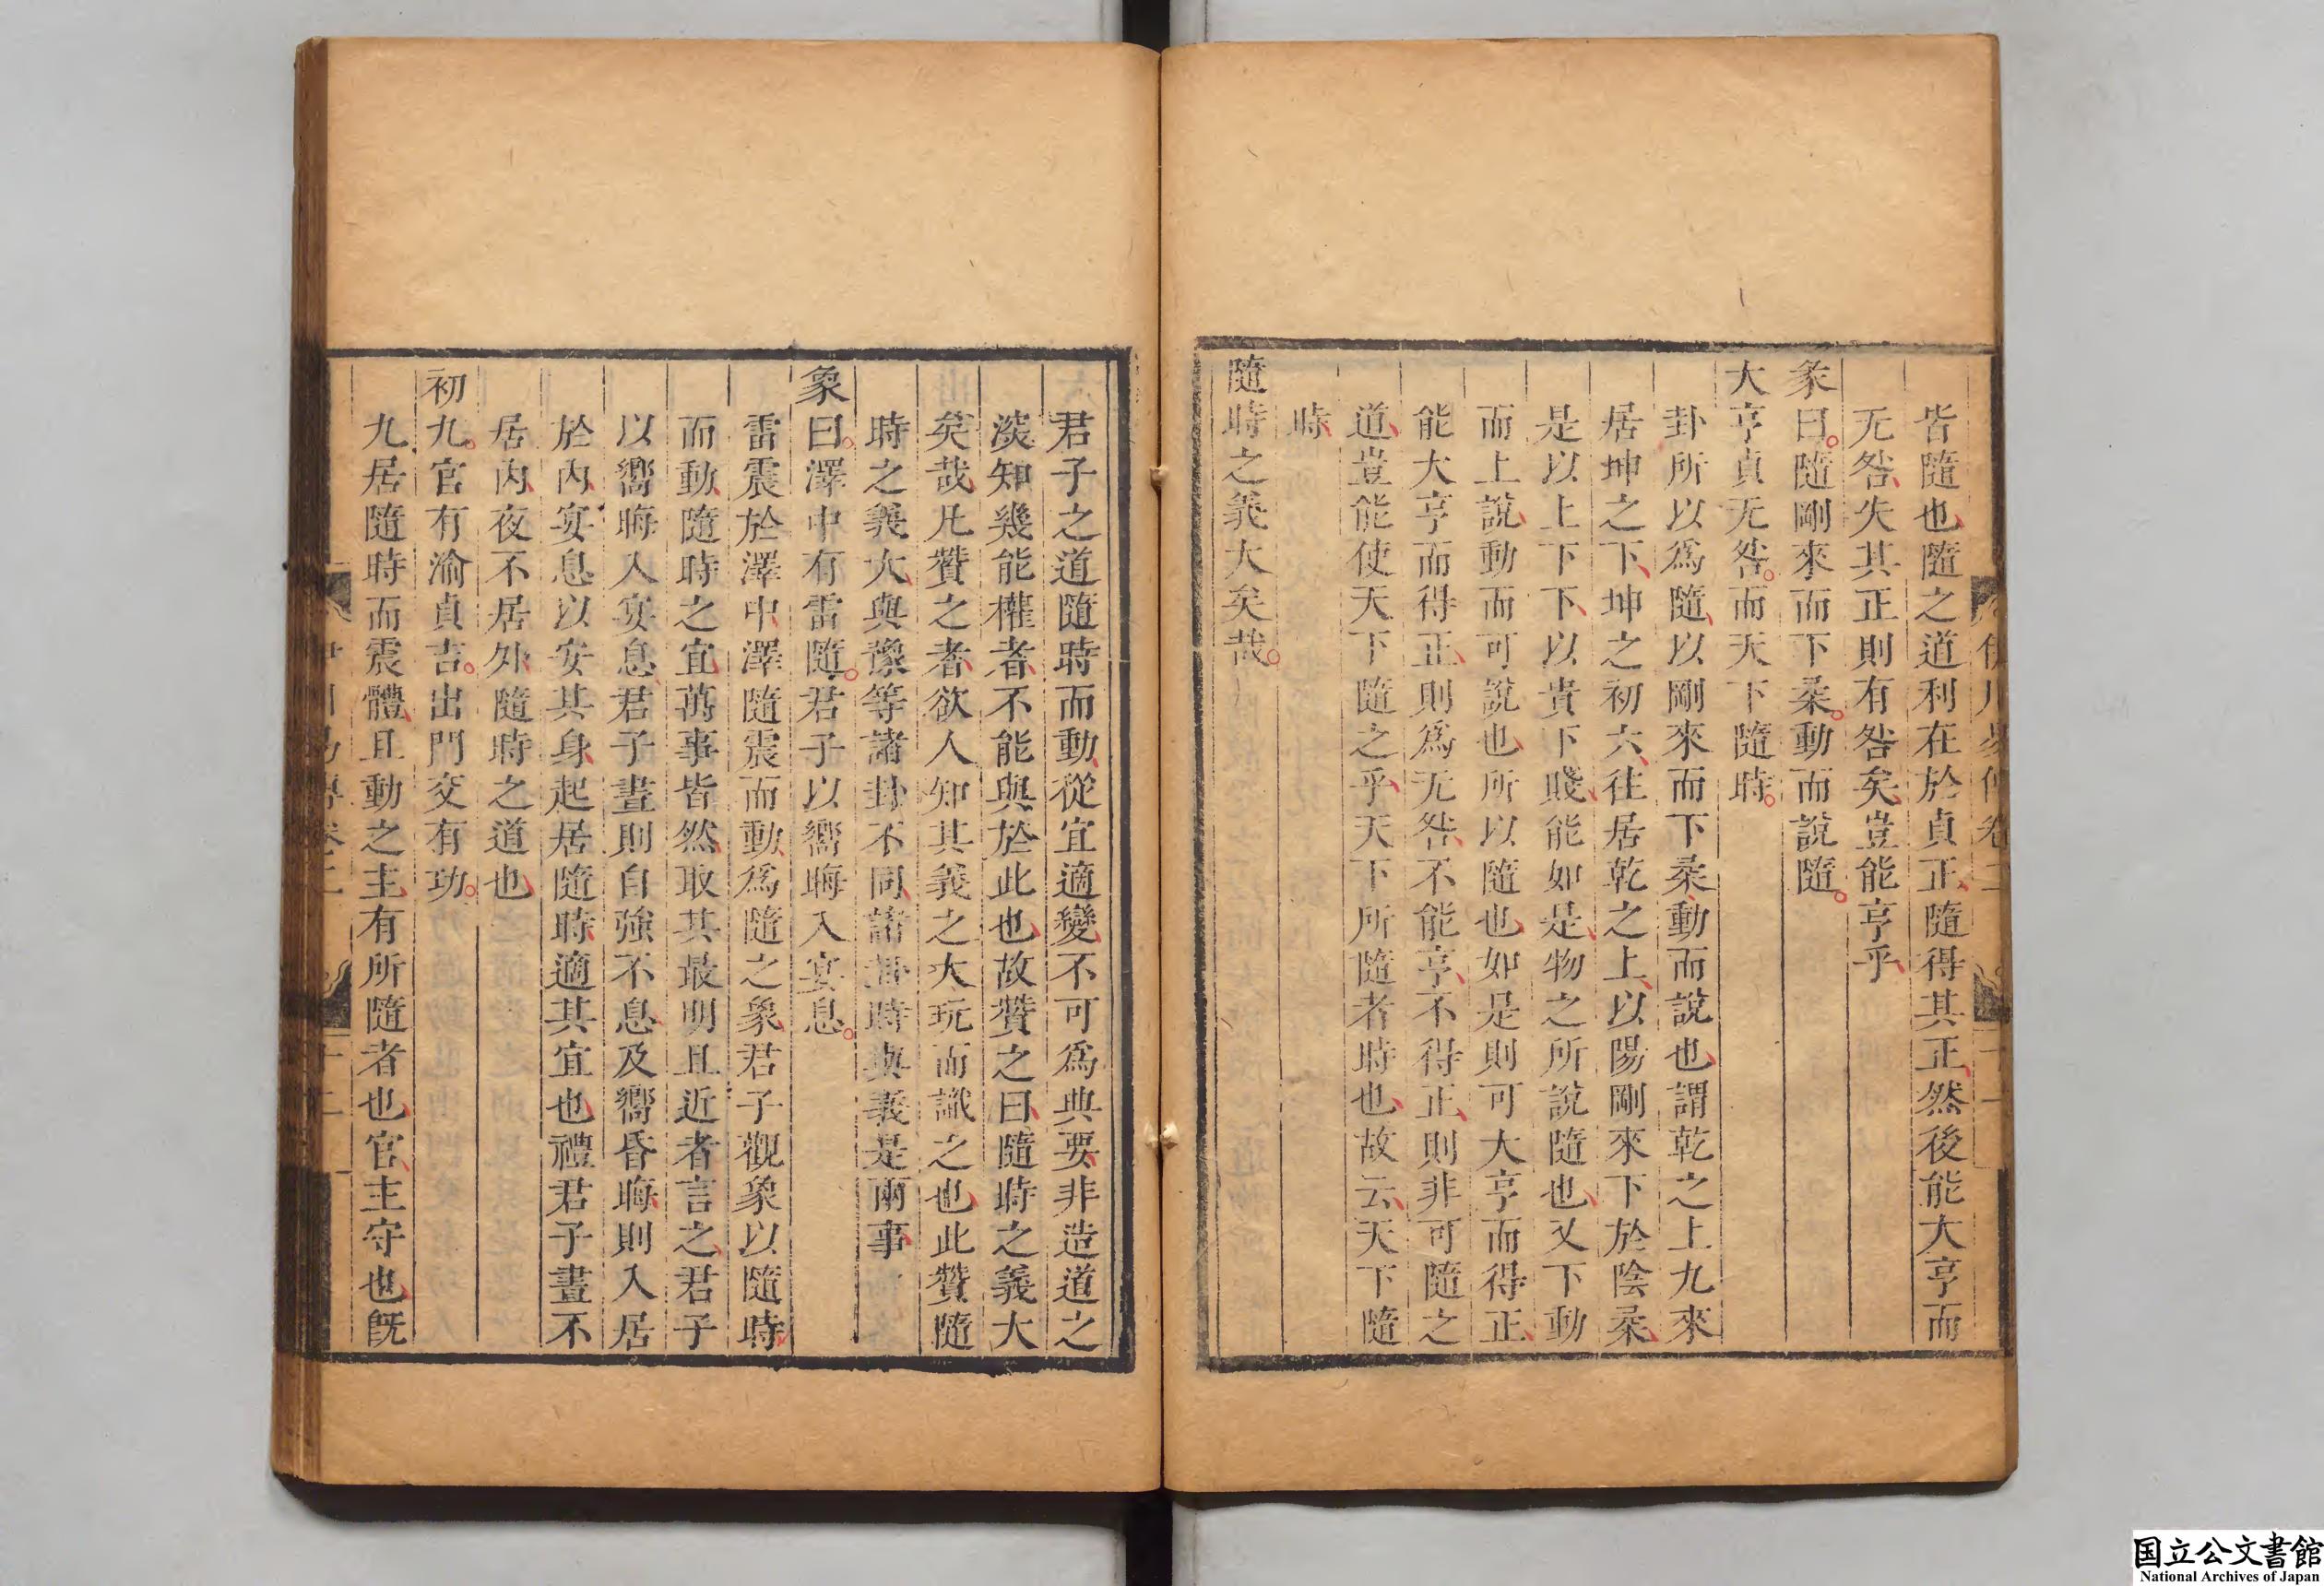 伊川易傳卷二
十二
皆隨也隨之道利在於貞正隨得其正然後能大亨而
无咎失其正則有咎矣豈能亨乎
彖曰。隨剛來而下柔。動而說隨。
大亨貞无咎。而天下隨時。
卦所以爲隨以剛來而下柔動而說也謂乾之上九來
居坤之下坤之初六往居乾之上以陽剛來下於陰柔
是以上下下以貴下賤能如是物之所說隨也又下動
而上說動而可說也所以隨也如是則可大亨而得正
能大亨而得正則爲无咎不能亨不得正則非可隨之
道豈能使天下隨之乎天下所隨者時也故云天下隨
時
隨時之義大矣哉。
君子之道隨時而動從宜適變不可爲典要非造道之
深知幾能權者不能與於此也故贊之曰隨時之義大
矣哉凡贊之者欲人知其義之大玩而識之也此贊隨
時之義大與豫等諸卦不同諸卦時與義是兩事
象曰。澤中有雷隨。君子以嚮晦入宴息。
雷震於澤中澤隨震而動爲隨之象君子觀象以隨時
而動隨時之宜萬事皆然取其最明且近者言之君子
以嚮晦入宴息君子晝則自強不息及嚮昏晦則入居
於內宴息以安其身起居隨時適其宜也禮君子晝不
居內夜不居外隨時之道也
初九。官有渝貞吉。出門交有功。
九居隨時而震體且動之主有所隨者也官主守也旣
伊川易傳卷二
十二
国立公文書館
National Archives of Japan